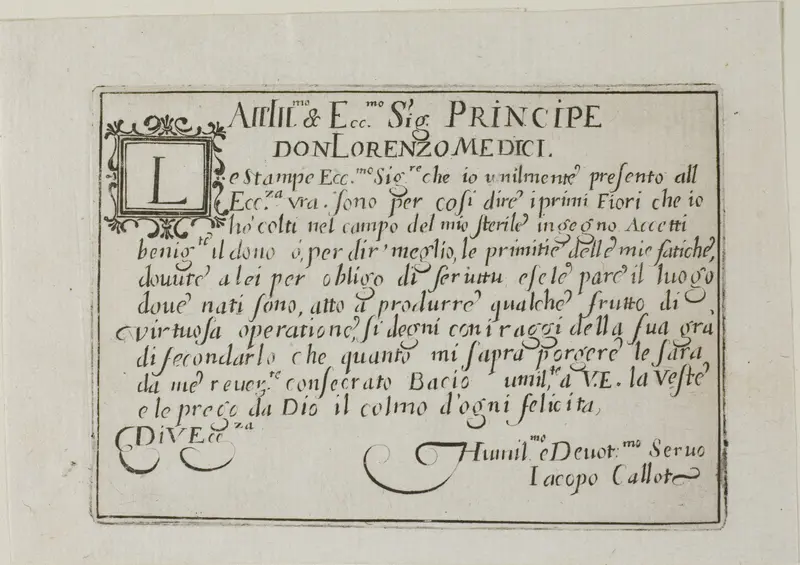 All Ill.mo & Ecc.mo Sig. PRINCIPE
DON LORENZO MEDICI.
Le Stampe Ecc.mo Sig.re che io vmilmente presento all
Ecc.za vra. sono per cosi dire i primi Fiori che io
hò colti nel campo del mio sterile ingegno. Accetti
benig.te il dono ò, per dir' meglio, le primitie delle mie fatiche,
douute a lei per obligo di seruitu e se le pare il luogo
doue nati sono, atto a produrre qualche frutto di
virtuosa operatione, si degni con i raggi della sua gra
di secondarlo che quanto mi sapra porgere le sara
da me reuer.te consecrato Bacio umil.te a V.E. la Veste
e le prego da Dio il colmo d'ogni felicita,
Di V Ecc.za
Humil.mo e Deuot.mo Seruo
Iacopo Callot